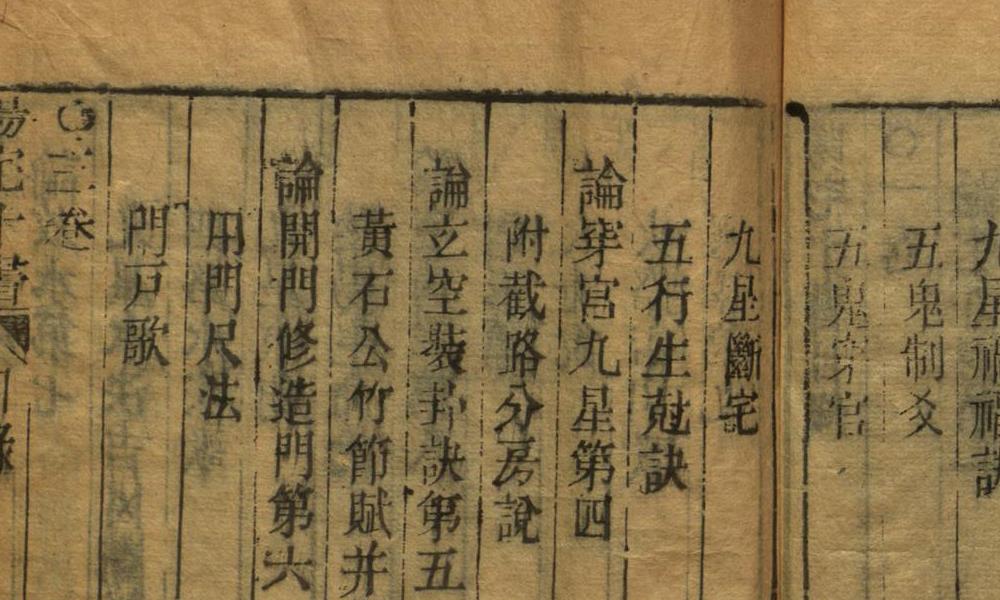 九星
五鬼制爻
五鬼穿宮
九星斷宅
五行生尅訣
論穿宮九星第四
附截路分房說
論玄空裝卦訣第五
黃石公竹節賦并
論開門修造門第六
用門尺法
門戸歌
○三卷
陽宅十書 目錄